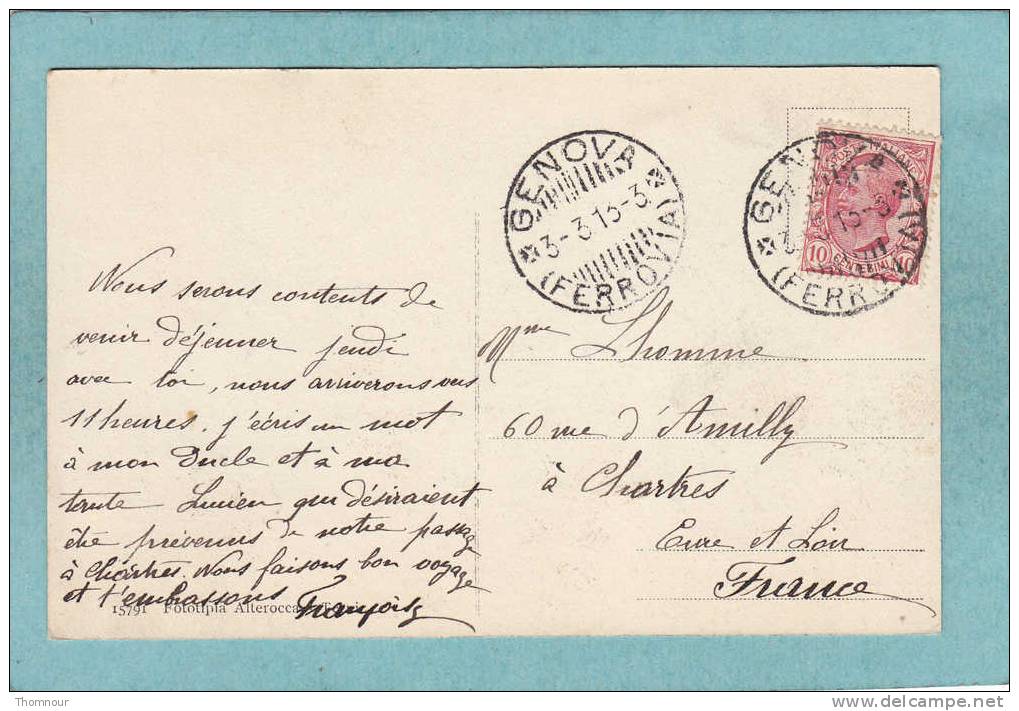 Nous serons contents de
venir déjeuner jeudi
avec toi, nous arriverons vers
11 heures. j'écris un mot
à mon Oncle et à ma
tante Lucien qui désiraient
être prévenus de notre passage
à Chartres. Nous faisons bon voyage
et t'embrassons Françoise
15791 Fototipia Alterocca
GENOVA
3-3 13-3
(FERROVIA)
GENOVA
13-3
(FERROVIA)
POSTE ITALIANE
10 CENTESIMI 10
Mme Lhomme
60 rue d'Amilly
à Chartres
Eure et Loir
France
Thomnour
www.delcampe.net